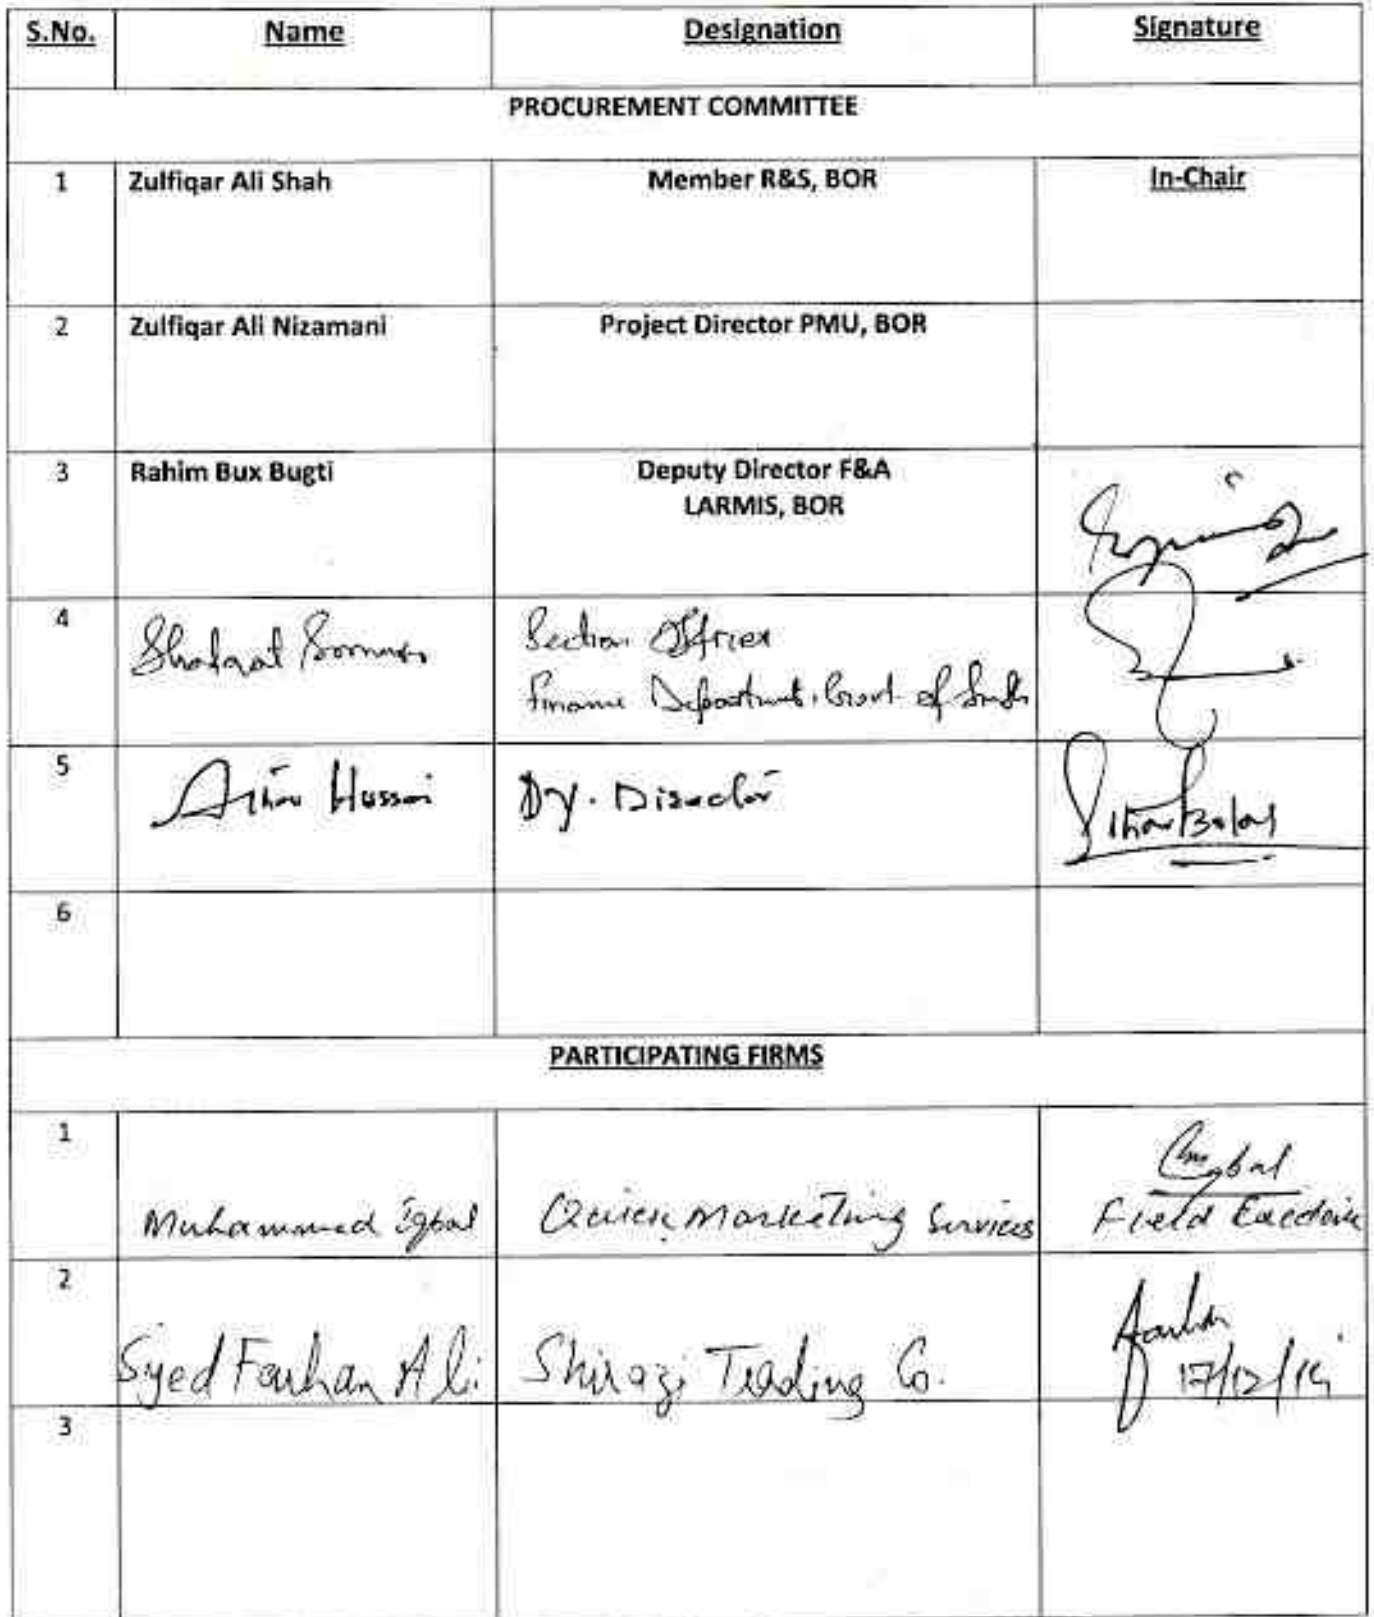 S.No. Name Designation Signature
PROCUREMENT COMMITTEE
1 Zulfiqar Ali Shah Member R&S, BOR In-Chair
2 Zulfiqar Ali Nizamani Project Director PMU, BOR
3 Rahim Bux Bugti Deputy Director F&A
LARMIS, BOR
4 Section Officer
Finance Department, Govt of Sindh
5 Hussain Dy. Director
6
PARTICIPATING FIRMS
1 Muhammad Iqbal Quick Marketing Services Iqbal
Field Executive
2 Syed Farhan Ali Shirazi Trading Co. Farhan
17/12/14
3